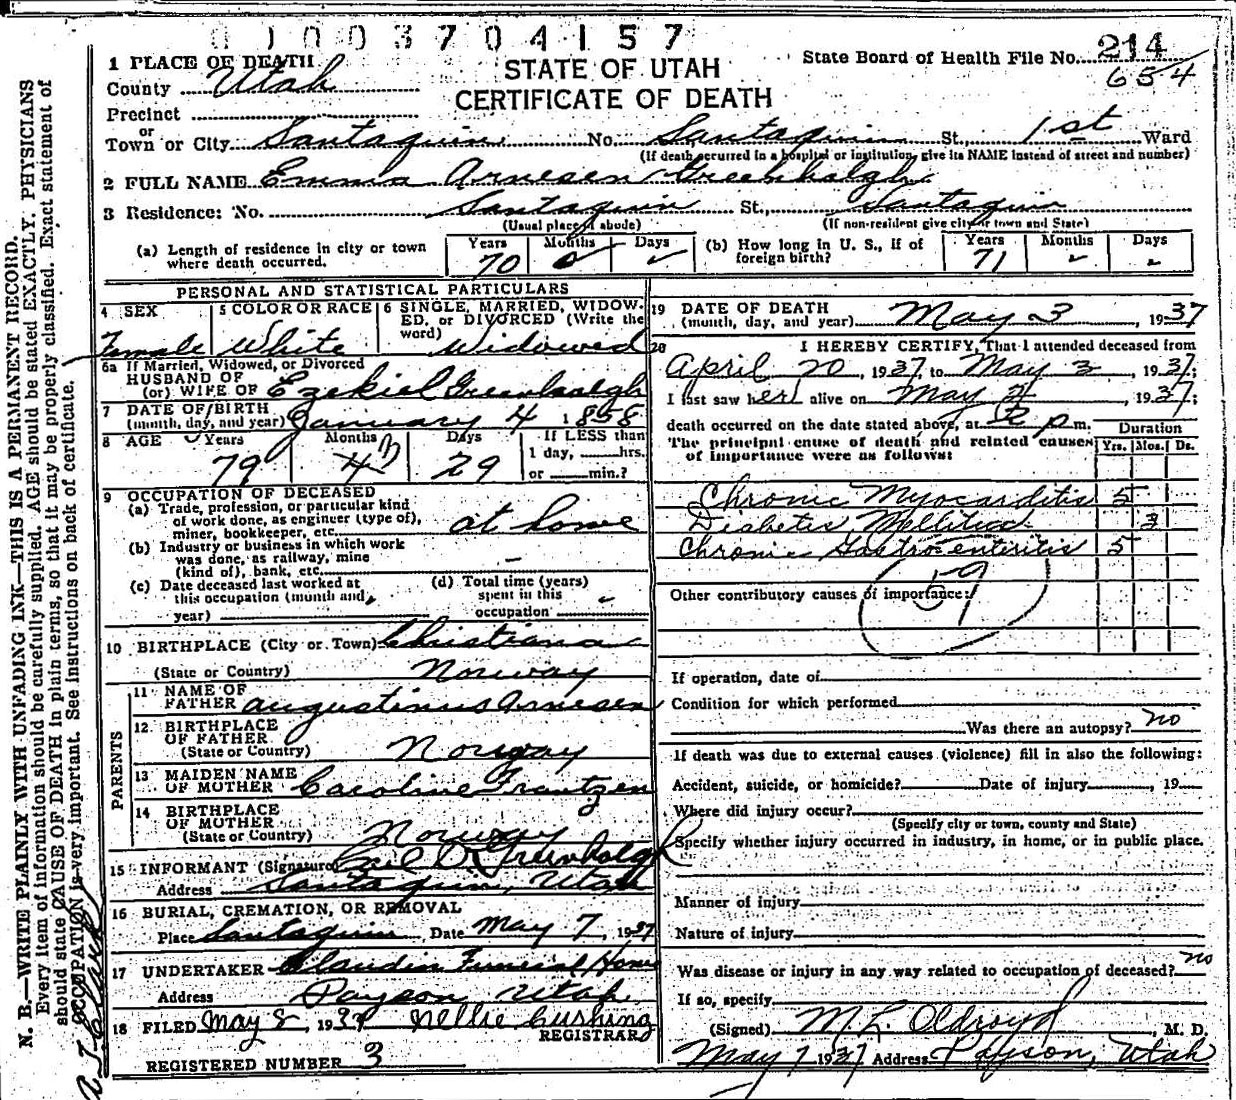 0 1 0 0 3 7 0 4 1 5 7
1 PLACE OF DEATH
County Utah
STATE OF UTAH
CERTIFICATE OF DEATH
State Board of Health File No. 214
654
Precinct
or
Town or City Santaquin No. Santaquin St., 1st Ward
(If death occurred in a hospital or institution, give its NAME instead of street and number)
2 FULL NAME Emma Arnesen Greenhalgh
3 Residence: No. Santaquin St., Santaquin
(Usual place of abode) (If non-resident give city or town and State)
(a) Length of residence in city or town where death occurred. Years 70 Months 0 Days -
(b) How long in U. S., if of foreign birth? Years 71 Months - Days -
PERSONAL AND STATISTICAL PARTICULARS
4 SEX Female
5 COLOR OR RACE White
6 SINGLE, MARRIED, WIDOWED, or DIVORCED (Write the word) Widowed
6a If Married, Widowed, or Divorced
HUSBAND OF
(or) WIFE OF Ezekiel Greenhalgh
7 DATE OF BIRTH
(month, day, and year) January 4 1858
8 AGE Years 79 Months Days 29 If LESS than
1 day, hrs.
or min.?
9 OCCUPATION OF DECEASED
(a) Trade, profession, or particular kind
of work done, as engineer (type of),
miner, bookkeeper, etc. at home
(b) Industry or business in which work
was done, as railway, mine
(kind of), bank, etc. -
(c) Date deceased last worked at
this occupation (month and
year)
(d) Total time (years)
spent in this
occupation -
10 BIRTHPLACE (City or Town) Christiana
(State or Country) Norway
PARENTS
11 NAME OF
FATHER Augustinus Arnesen
12 BIRTHPLACE
OF FATHER
(State or Country) Norway
13 MAIDEN NAME
OF MOTHER Caroline Frantzen
14 BIRTHPLACE
OF MOTHER
(State or Country) Norway
15 INFORMANT (Signature) Greenhalgh
Address Santaquin, Utah
16 BURIAL, CREMATION, OR REMOVAL
Place Santaquin, Date May 7, 1937
17 UNDERTAKER Claudin Funeral Home
Address Payson Utah
18 FILED May 8, 1937 Nellie Cushing
REGISTRAR
REGISTERED NUMBER 3
19 DATE OF DEATH
(month, day, and year) May 3, 1937
20 I HEREBY CERTIFY, That I attended deceased from
April 20, 1937, to May 3, 1937;
I last saw her alive on May 2, 1937;
death occurred on the date stated above, at p m.
The principal cause of death and related causes
of importance were as follows:
Duration
Yrs. Mos. Ds.
Chronic Myocarditis 5
Diabetes Mellitus 3
Chronic Gastro enteritis 5
59
Other contributory causes of importance:
If operation, date of
Condition for which performed
Was there an autopsy? no
If death was due to external causes (violence) fill in also the following:
Accident, suicide, or homicide? Date of injury , 19
Where did injury occur?
(Specify city or town, county and State)
Specify whether injury occurred in industry, in home, or in public place.
Manner of injury
Nature of injury
Was disease or injury in any way related to occupation of deceased? no
If so, specify
(Signed) M. L. Oldroyd, M. D.
May 7 1937 Address Payson, Utah
N. B.—WRITE PLAINLY WITH UNFADING INK—THIS IS A PERMANENT RECORD.
Every item of information should be carefully supplied. AGE should be stated EXACTLY. PHYSICIANS
should state CAUSE OF DEATH in plain terms, so that it may be properly classified. Exact statement of
OCCUPATION is very important. See instructions on back of certificate.